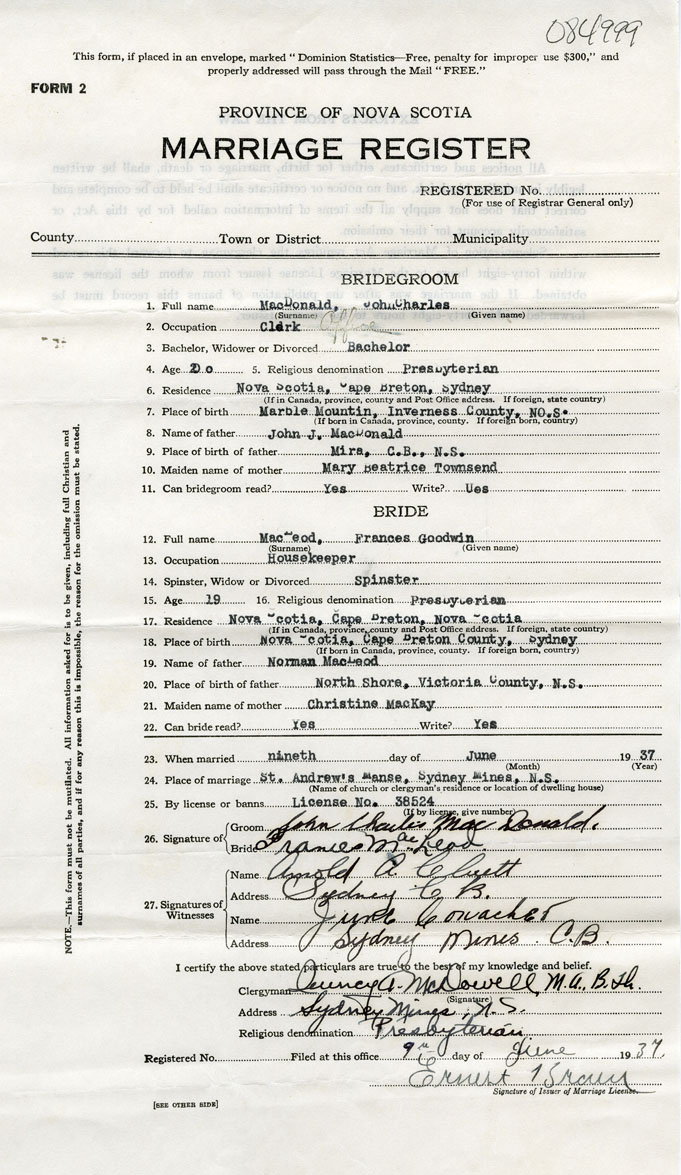 084999
This form, if placed in an envelope, marked "Dominion Statistics—Free, penalty for improper use $300," and
properly addressed will pass through the Mail "FREE."
FORM 2
PROVINCE OF NOVA SCOTIA
MARRIAGE REGISTER
REGISTERED No.
(For use of Registrar General only)
County Town or District Municipality
BRIDEGROOM
1. Full name MacDonald, John Charles
(Surname) (Given name)
2. Occupation Clerk Office
3. Bachelor, Widower or Divorced Bachelor
4. Age 20 5. Religious denomination Presbyterian
6. Residence Nova Scotia, Cape Breton, Sydney
(If in Canada, province, county and Post Office address. If foreign, state country)
7. Place of birth Marble Mountin, Inverness County, NO.S.
(If born in Canada, province, county. If foreign born, country)
8. Name of father John J. MacDonald
9. Place of birth of father Mira, C.B., N.S.
10. Maiden name of mother Mary Beatrice Townsend
11. Can bridegroom read? Yes Write? Ues
BRIDE
12. Full name MacLeod, Frances Goodwin
(Surname) (Given name)
13. Occupation Housekeeper
14. Spinster, Widow or Divorced Spinster
15. Age 19 16. Religious denomination Presbyterian
17. Residence Nova Scotia, Cape Breton, Nova Scotia
(If in Canada, province, county and Post Office address. If foreign, state country)
18. Place of birth Nova Scotia, Cape Breton County, Sydney
(If born in Canada, province, county. If foreign born, country)
19. Name of father Norman MacLeod
20. Place of birth of father North Shore, Victoria County, N.S.
21. Maiden name of mother Christine MacKay
22. Can bride read? Yes Write? Yes
23. When married nineth day of June 1937
(Month) (Year)
24. Place of marriage St. Andrew's Manse, Sydney Mines, N.S.
(Name of church or clergyman's residence or location of dwelling house)
25. By license or banns License No. 38524
(If by license, give number)
26. Signature of
Groom John Charlie MacDonald.
Bride Frances MacLeod
27. Signatures of Witnesses
Name Arnold A Cluett
Address Sydney C B.
Name June
Address Sydney Mines. C.B.
I certify the above stated particulars are true to the best of my knowledge and belief.
Clergyman Quincy A. McDowell, M.A., B.Th.
(Signature)
Address Sydney Mines, N.S.
Religious denomination Presbyterian
Registered No. Filed at this office 9th day of June 1937.
Ernest
Signature of Issuer of Marriage License.
[SEE OTHER SIDE]
NOTE.—This form must not be mutilated. All information asked for is to be given, including full Christian and
surnames of all parties, and if for any reason this is impossible, the reason for the omission must be stated.